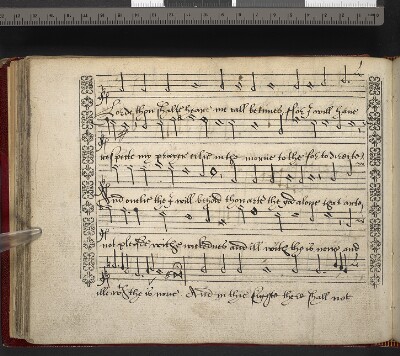 Lorde thou shalte heare me call betimes, ffor I will have
respecte my prayer erlie in the morne to the for to directe
And onelie the I will beholde thou arte the god alone that arte
not pleased withe wickednes and ill with the is none and
ill with the is none And in thie sight there shall not